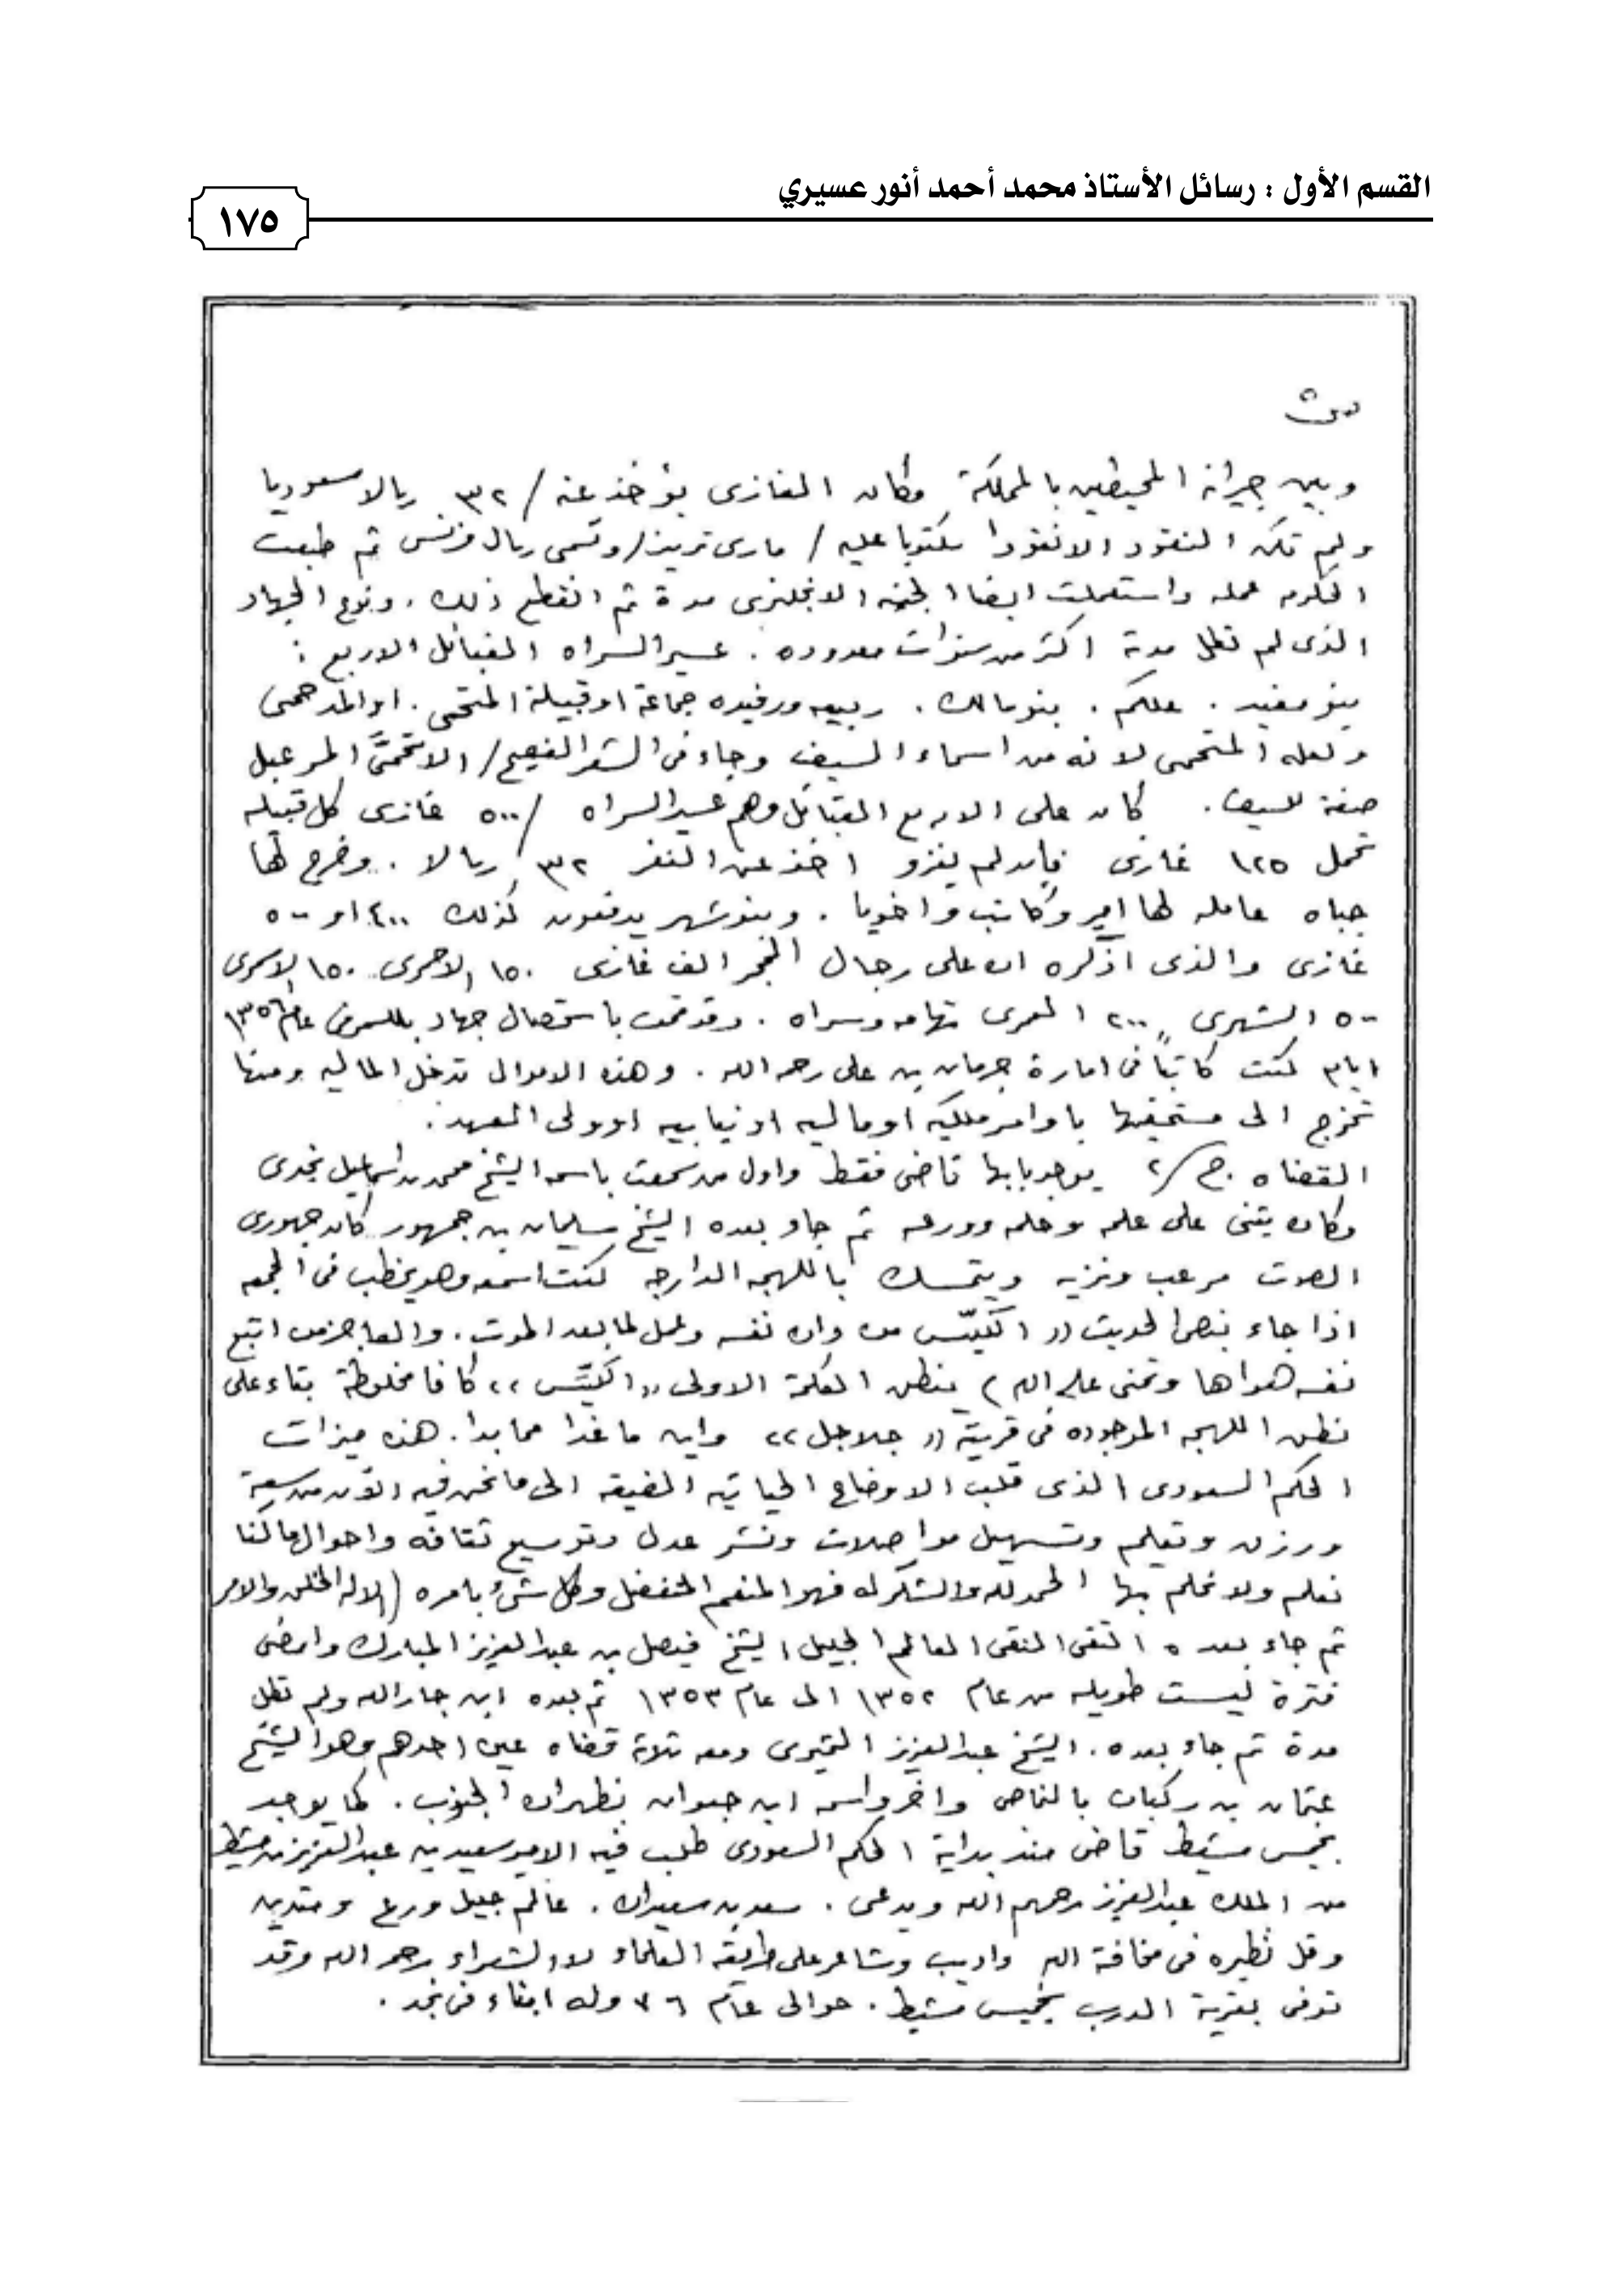 القسم الأول : رسائل الأستاذ محمد أحمد أنور عسيري
١٧٥
وبين جيرانه المحيطين بالمملكة فكان الغازى يؤخذ عنه / ٣٢ ريالا سعوديا
ولم تكن النقود الا نقودا مكتوبا عليه / مارى تريز / وتسمى ريال فرنس ثم طبعت
الحكومه عمله واستعملت ايضا الجنيه الانجليزى مدة ثم انقطع ذلك . ونوع الجهاد
الذى لم تطل مدته اكثر من سنوات معدوده . عسير السراه القبائل الاربع :
بنو مغيد . علكم . بنو مالك . ربيعه ورفيده جماعة او قبيلة المتحمى . او المدحمى
ولعله المتحمى لانه من اسماء السيف وجاء فى الشعر الفصيح / الاتحمىَّ المرعبل
صفة للسيف . كان على الاربع القبائل وهم عسير السراه / ٥٠٠ غازى كل قبيله
تحمل ١٢٥ غازى فإن لم يغزو اخذ عن النفر ٣٢ ريالا . وخرج لها
جباه عامله لها امير وكاتب واخويا . وبنو شهر يدفعون كذلك ٤٠٠ او ٥٠٠
غازى والذى اذكره ان على رجال الحجر الف غازى ١٥٠ الاحمرى ١٥٠ الاسمرى
٥٠٠ الشهرى ٢٠٠ العمرى تهامه وسراه . وقد قمت باستحصال جهاد بللسمر فى عام ١٣٥٦
ايام كنت كاتباً فى امارة جرمان بن على رحمه الله . وهذه الاموال تدخل الماليه ومنها
تخرج الى مستحقيها باوامر ملكيه او ماليه او نيابيه او ولى العهد .
القضاه . ج / ٢ يوجد بابها قاضى فقط واول من سمعت باسمه الشيخ محمد بن اسماعيل نجدى
وكان يثنى على علمه وحلمه وورعه ثم جاء بعده الشيخ سليمان بن جمهور كان جهورى
الصوت مرعب ونزيه ويتمسك باللهجه الدارجه كنت اسمعه وهو يخطب فى الجمعه
اذا جاء بنص الحديث (( الكيّس من دان نفسه وعمل لما بعد الموت . والعاجز من اتبع
نفسه هواها وتمنى على الله ) ينطق الكلمة الاولى (( الكيّس )) كافا مخلوطة بتاء على
نطق اللهجه الموجوده فى قريته (( جلاجل )) واين ما غدا مما بدا . هذه ميزات
الحكم السعودى الذى قلب الاوضاع الحياتيه الضيقه الى ما نحن فيه الآن من سعة
ورزق وتعليم وتسهيل مواصلات ونشر عدل وتوسيع ثقافه واحوال ما كنا
نعلم ولا نحلم بها الحمد لله والشكر له فهو المنعم المتفضل وكل شئ بامره ( الا له الخلق والامر
ثم جاء بعده التقى النقى العالم الجليل الشيخ فيصل بن عبدالعزيز المبارك وامضى
فترة ليست طويله من عام ١٣٥٢ الى عام ١٣٥٣ ثم بعده ابن جارالله ولم تطل
مدة ثم جاء بعده . الشيخ عبدالعزيز ومعه ثلاثة قضاه عين احدهم وهو الشيخ
عثمان بن ركبان بالنماص واخر واسمه ابن بظهران الجنوب . كما يوجد
بخميس مشيط قاضى منذ بداية الحكم السعودى طلب فيه الامير سعيد بن عبدالعزيز بن مشيط
من الملك عبدالعزيز رحمهم الله ويدعى . سعد بن سعيدان . عالم جليل ورع ومتدين
وقل نظيره فى مخافة الله واديب وشاعر على طريقه العلماء لا الشعراء رحمه الله وقد
توفى بقرية الدرب بخميس مشيط . حوالى عام ٧٦ وله ابناء فى نجد .